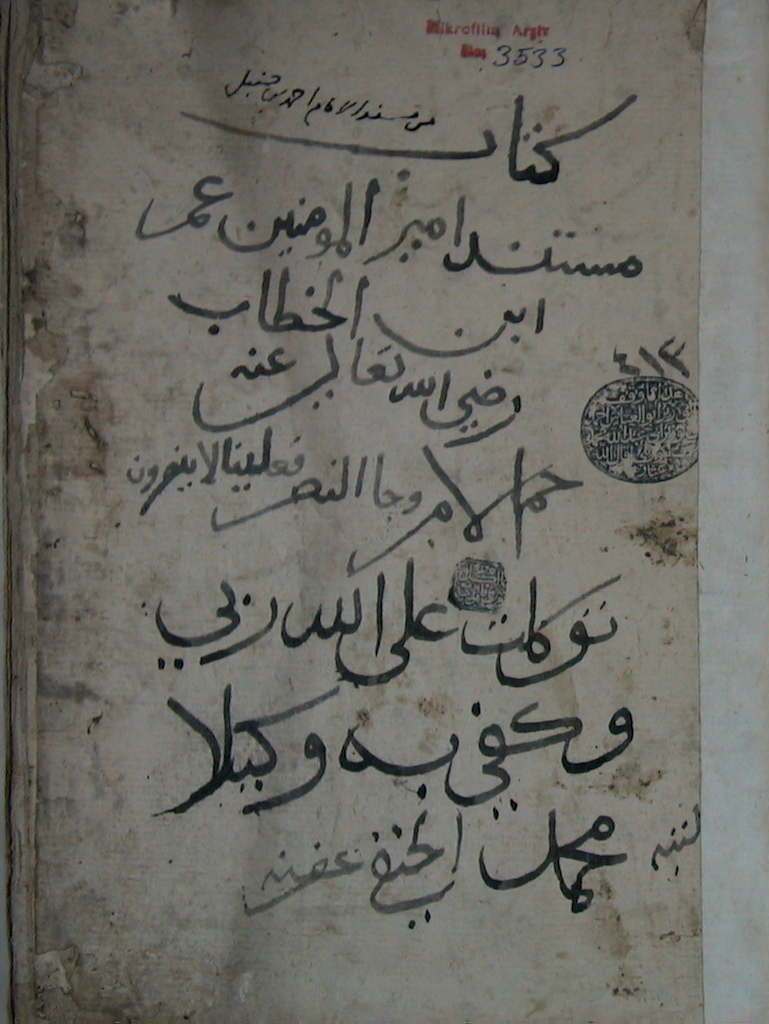 Mikrofilm Arşiv
No: 3533
من مسند الامام احمد بن حنبل
كتاب
مسند امير المومنين عمر
ابن الخطاب
رضي الله تعالى عنه
٤١٣
حم الامر وجا النصر فعلينا لا ينصرون
توكلت على الله ربي
وكفى به وكيلا
كتبه محمد الحنفي عفي عنه